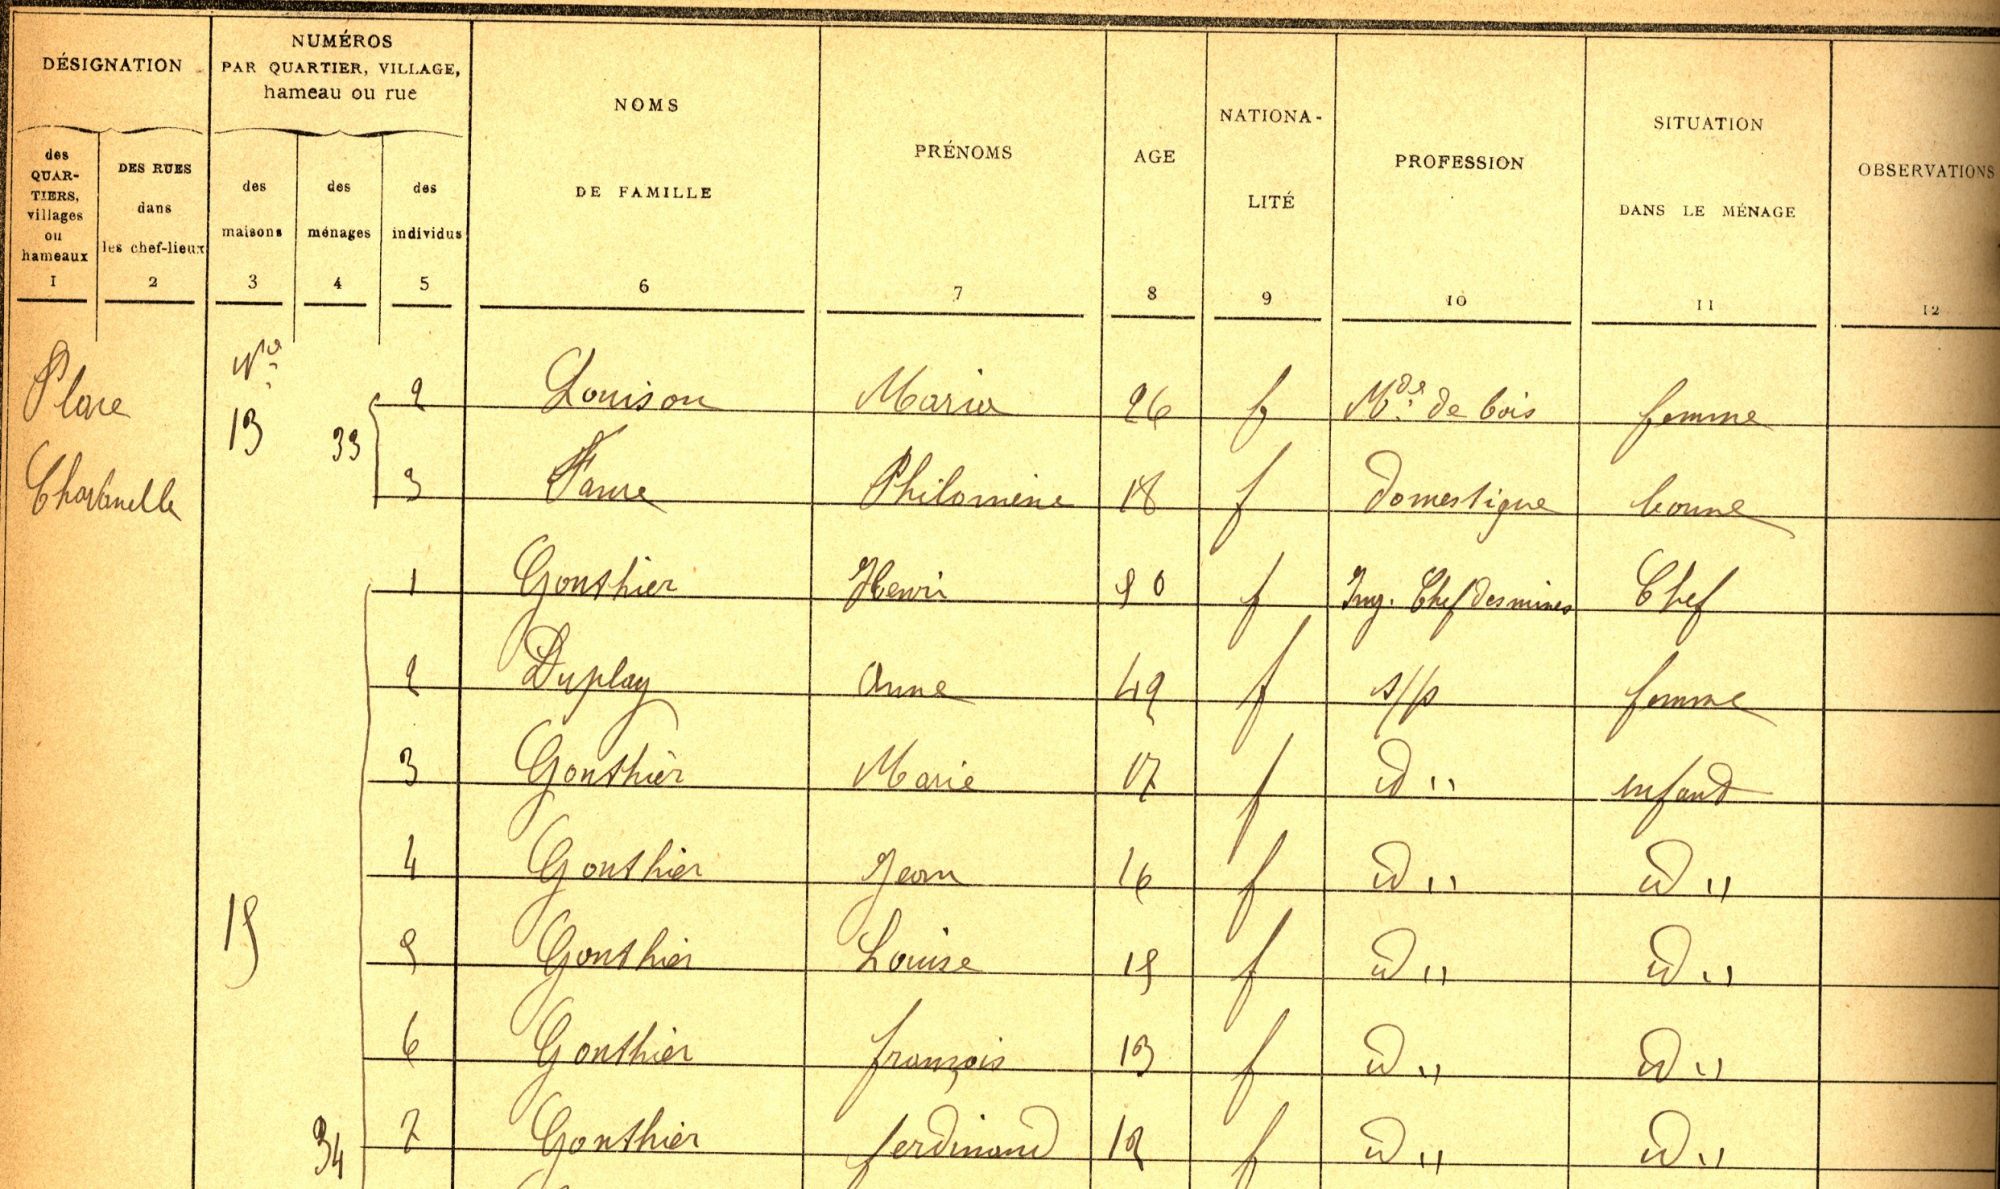 DÉSIGNATION
NUMÉROS
PAR QUARTIER, VILLAGE,
hameau ou rue
des
QUAR-
TIERS,
villages
ou
hameaux
1
DES RUES
dans
les chef-lieux
2
des
maisons
3
des
ménages
4
des
individus
5
NOMS
DE FAMILLE
6
PRÉNOMS
7
AGE
8
NATIONA-
LITÉ
9
PROFESSION
10
SITUATION
DANS LE MÉNAGE
11
OBSERVATIONS
12
Place
Nº
13 33
2 Louison Maria 26 f Mde de bois femme
3 Faure Philomène 18 f domestique bonne
1 Gonthier Henri 50 f Ing. Chef des mines Chef
2 Duplay Anne 42 f s/p femme
3 Gonthier Marie 17 f id " enfant
4 Gonthier Jean 16 f id " id "
15
5 Gonthier Louise 15 f id " id "
6 Gonthier françois 13 f id " id "
34 7 Gonthier ferdinand 12 f id " id "